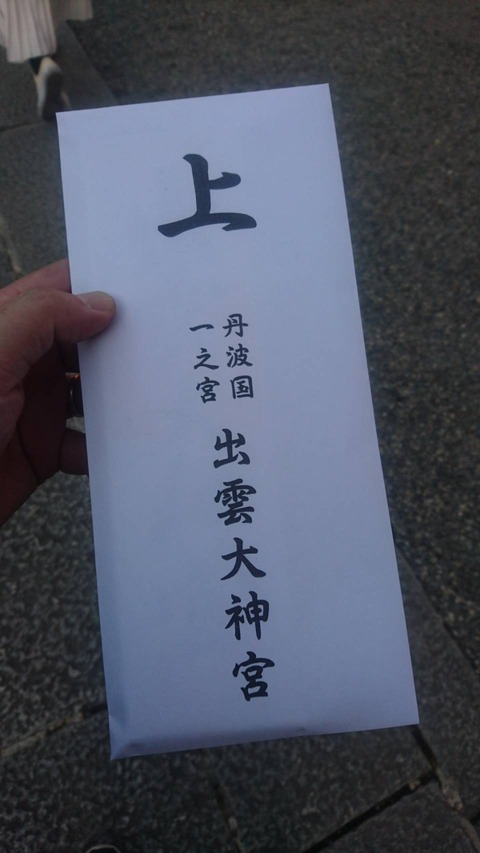 上
丹波国
一之宮
出雲大神宮